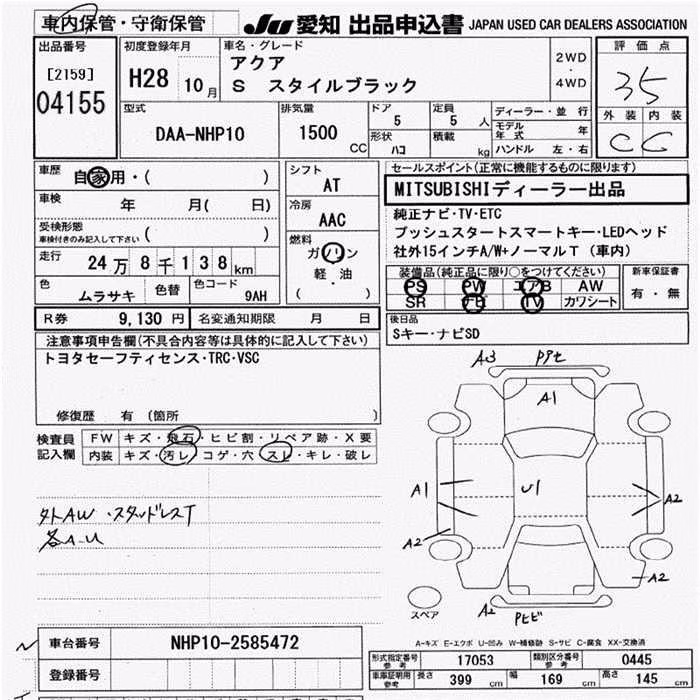 車内保管・守衛保管
JU 愛知 出品申込書 JAPAN USED CAR DEALERS ASSOCIATION
出品番号
[2159]
04155
初度登録年月
H28 10月
車名・グレード
アクア
S スタイルブラック
2WD
・
4WD
評価点
35
外装 内装
C C
型式
DAA-NHP10
排気量
1500 CC
ドア
5
定員
5 人
形状
ハコ
積載
kg
ディーラー・並行
モデル年式 年
ハンドル 左・右
車歴
自家用・( )
車検
年 月( 日)
受検形態
車検付きのみ記入して下さい ( )
走行
24万8千138km
色
ムラサキ
色替
色コード
9AH
シフト
AT
冷房
AAC
燃料
ガソリン
軽・油
( )
セールスポイント(正常に機能するものに限ります)
MITSUBISHIディーラー出品
純正ナビ・TV・ETC
プッシュスタートスマートキー・LEDヘッド
社外15インチA/W+ノーマルT (車内)
装備品(純正品に限り○をつけてください)
PS PW エアB AW
SR ナビ TV カワシート
新車保証書
有・無
R券 9,130円
名変通知期限 月 日
後日品
Sキー・ナビSD
注意事項申告欄(不具合内容等は具体的に記入して下さい)
トヨタセーフティセンス・TRC・VSC
修復歴 有 (箇所 )
検査員
記入欄
FW キズ・飛石・ヒビ割・リペア跡・X要
内装 キズ・汚レ・コゲ・穴・スレ・キレ・破レ
外AW・スタッドレスT
各A-U
A3
A1
A1
U1
A2
A2
A2
A2
スペア
A-キズ E-エクボ U-凹み W-補修跡 S-サビ C-腐食 XX-交換済
車台番号 NHP10-2585472
登録番号
形式指定番号
参考
17053
類別区分番号
参考
0445
車庫証明用
参考
長さ 399 cm 幅 169 cm 高さ 145 cm